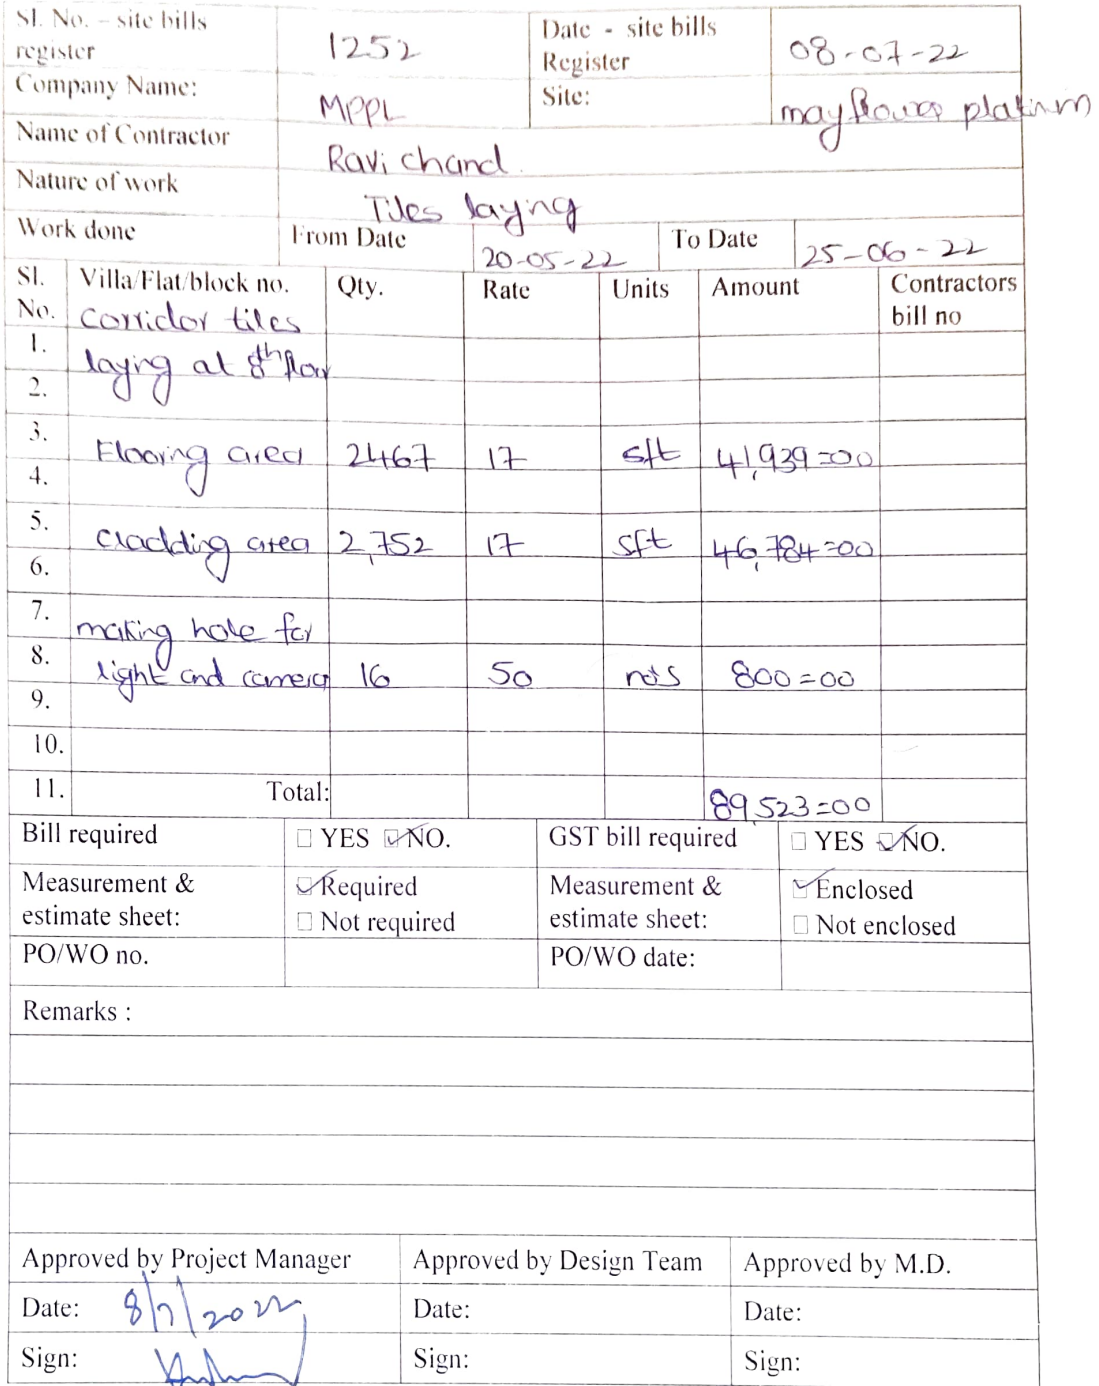 Sl. No. – site bills register 1252 Date - site bills Register 08-07-22
Company Name: MPPL Site: mayflower platinum
Name of Contractor Ravi chand.
Nature of work Tiles laying
Work done From Date 20-05-22 To Date 25-06-22
Sl. No. Villa/Flat/block no. Qty. Rate Units Amount Contractors bill no
corridor tiles
1. laying at 8th floor
2.
3. Flooring area 2467 17 sft 41,939=00
4.
5. cladding area 2,752 17 sft 46,784=00
6.
7. making hole for
8. light and camera 16 50 no's 800=00
9.
10.
11. Total: 89,523=00
Bill required YES NO. GST bill required YES NO.
Measurement & estimate sheet: Required Not required Measurement & estimate sheet: Enclosed Not enclosed
PO/WO no. PO/WO date:
Remarks :
Approved by Project Manager Approved by Design Team Approved by M.D.
Date: 8/7/2022 Date: Date:
Sign: Sign: Sign: